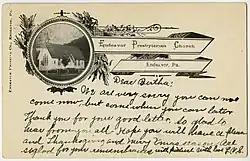 Endeavor Presbyterian Church
Endeavor, Pa.
Dear Bertha:
We are very sorry you can not
come now, but come when you can later
Thank you for your good letter. So glad to
hear from you all. Hope you will have a pleas-
ant Thanksgiving and merry Xmas
for your remembrance